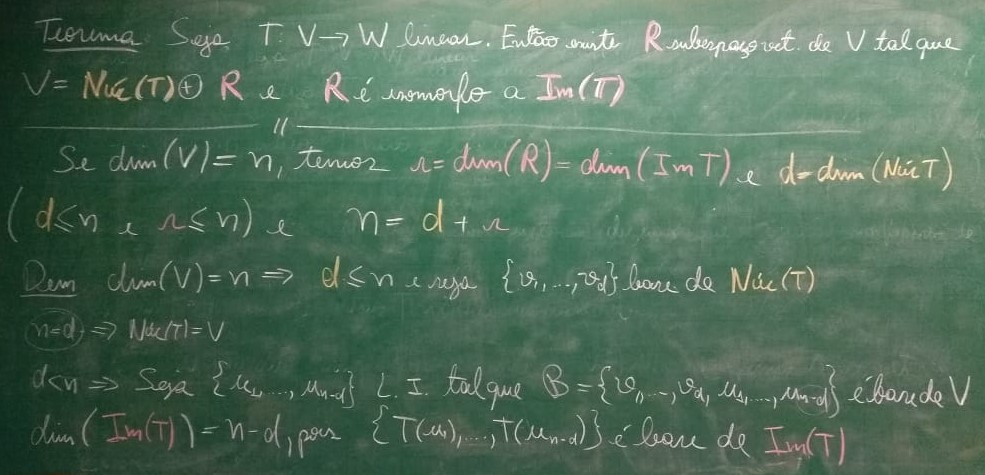 Teorema Seja T: V → W linear. Então existe R subespaço vet. de V tal que
V = Núc(T) ⊕ R e R é isomorfo a Im(T)
//
Se dim(V) = n, temos r = dim(R) = dim(Im T) e d = dim(Núc T)
(d ≤ n e r ≤ n) e n = d + r
Dem dim(V) = n ⇒ d ≤ n e seja {v₁, ..., v_d} base de Núc(T)
n=d ⇒ Núc(T) = V
d<n ⇒ Seja {u₁, ..., u_{n-d}} L.I. tal que B = {v₁, ..., v_d, u₁, ..., u_{n-d}} é base de V
dim(Im(T)) = n-d, pois {T(u₁), ..., T(u_{n-d})} é base de Im(T)